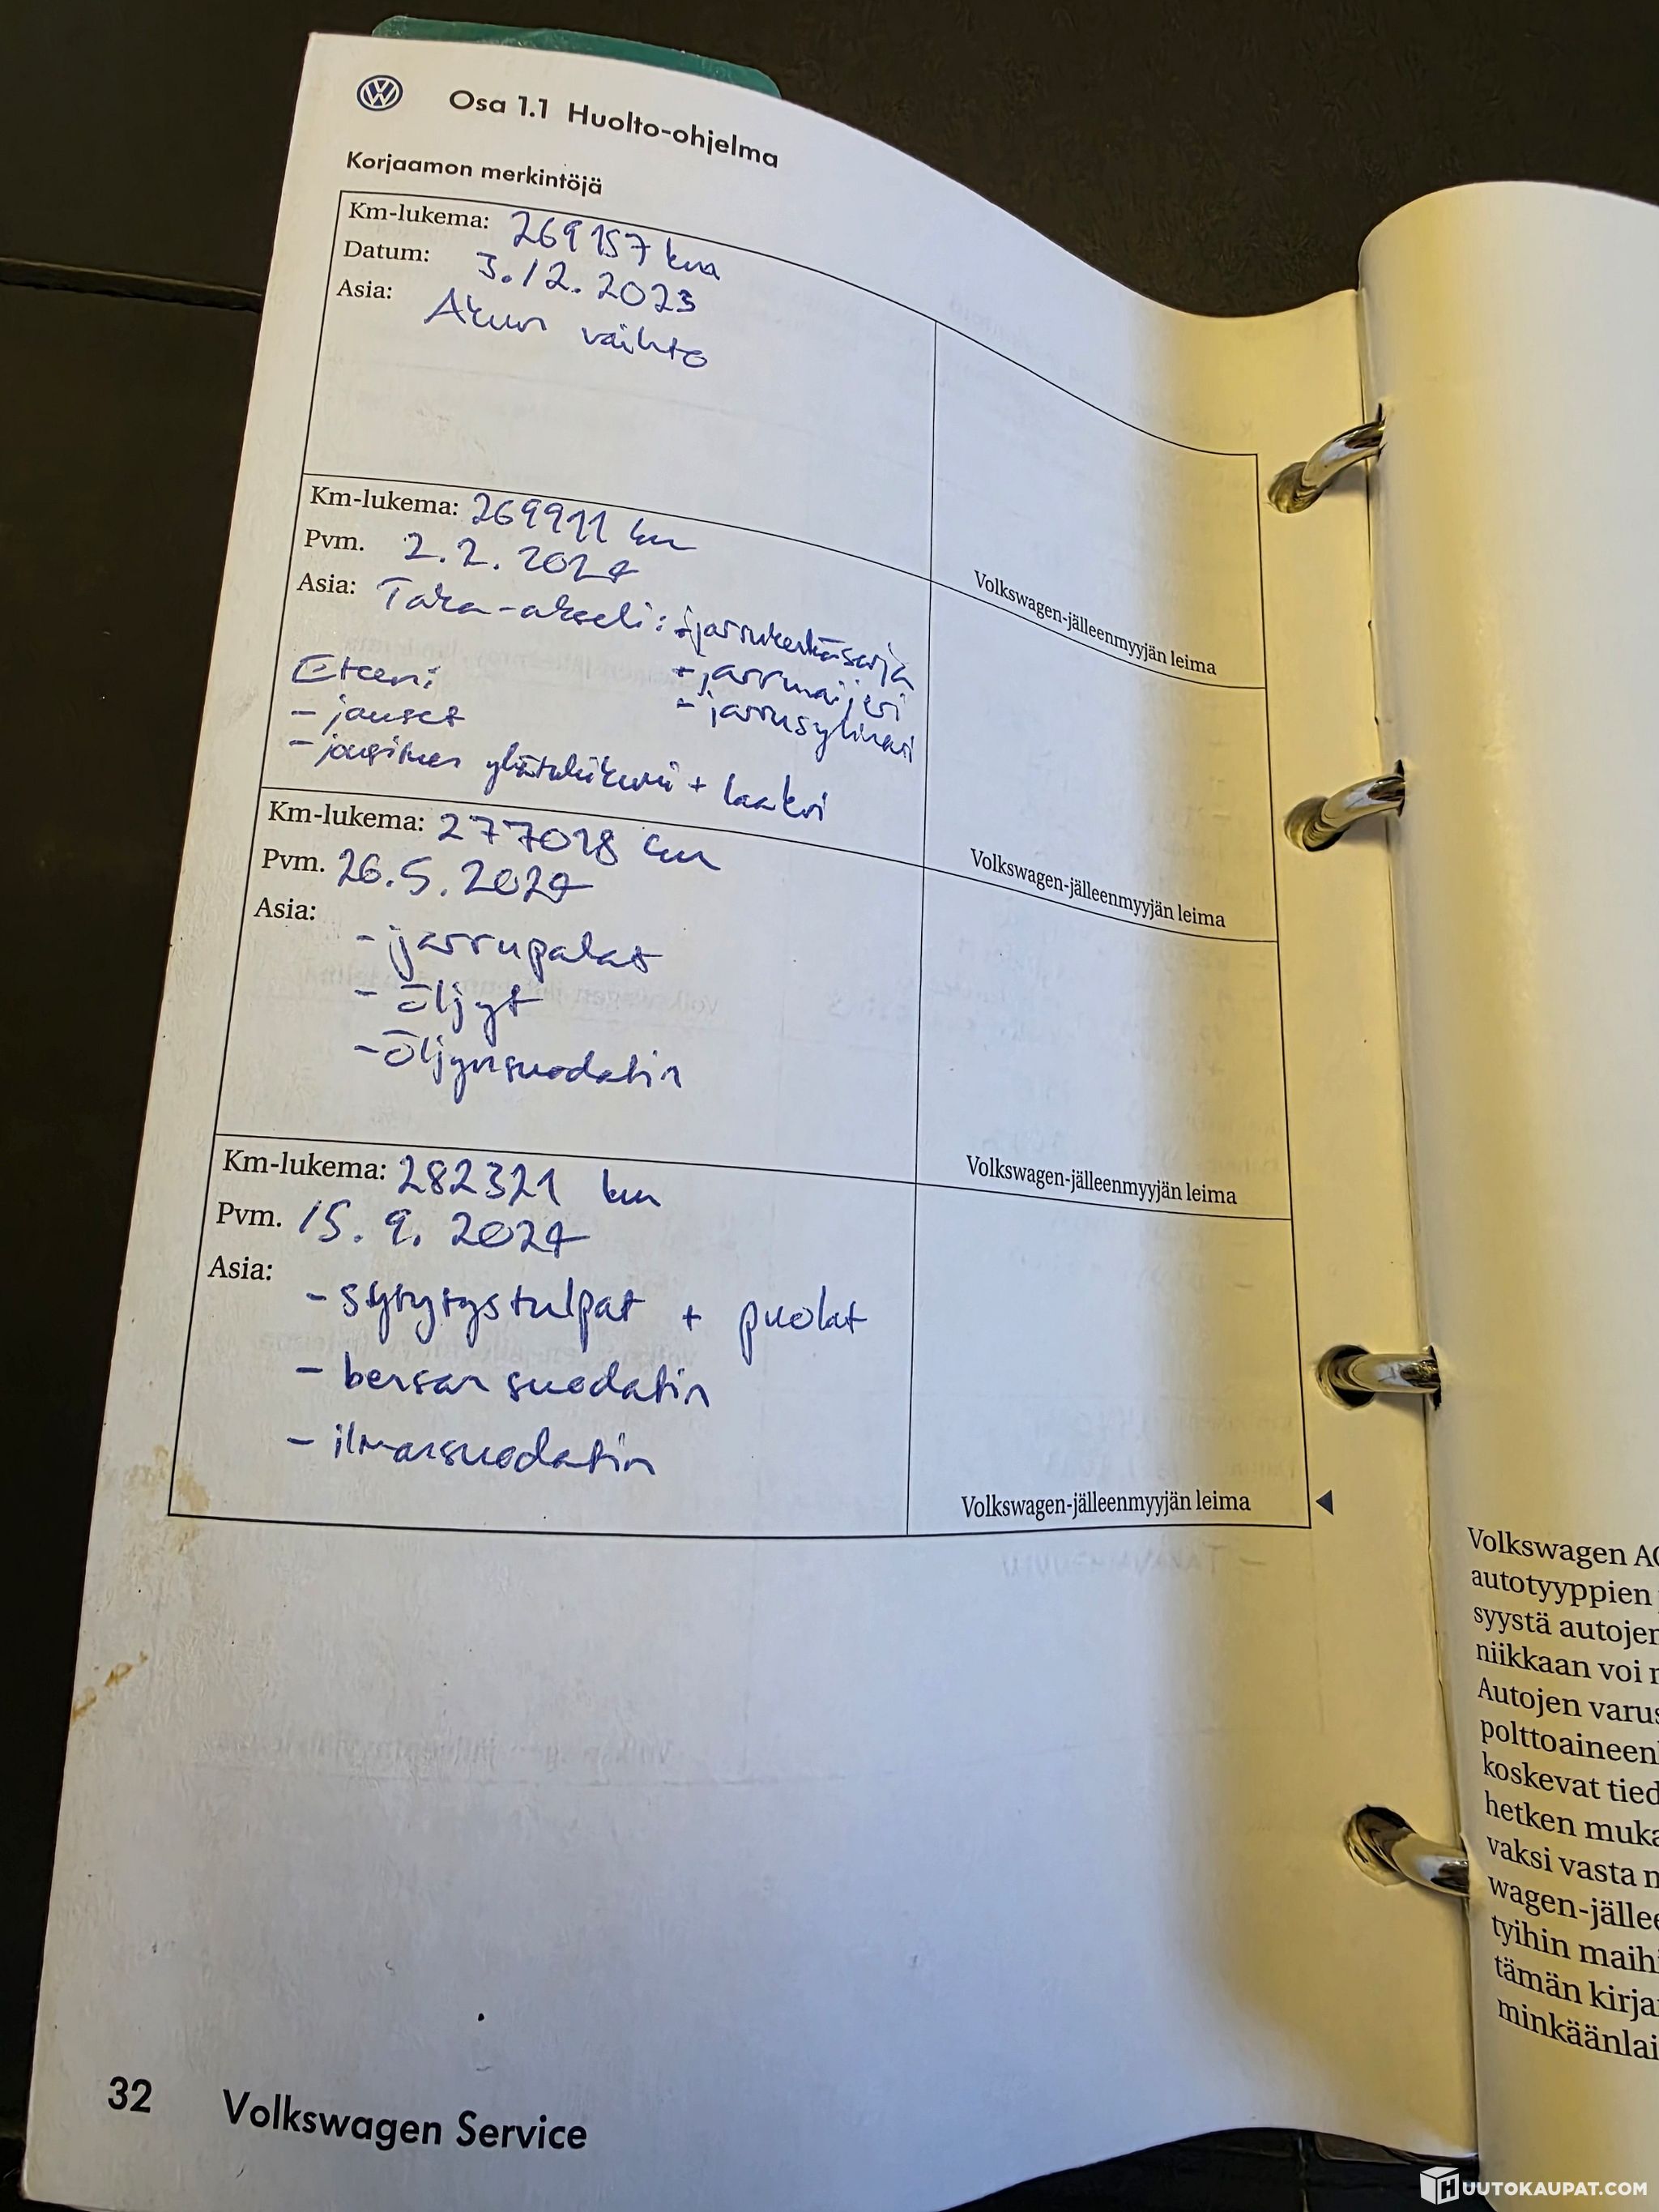 Osa 1.1 Huolto-ohjelma
Korjaamon merkintöjä
Km-lukema: 269157 km
Datum: 3.12.2023
Asia: Akun vaihto
Km-lukema: 269911 km
Pvm. 2.2.2024
Asia: Taka-akseli: - jarrukenkäsarja
- jarruvaijeri
- jarrusylinteri
Eteen:
- jouset
- jousituen ylätukikumi + laakeri
Volkswagen-jälleenmyyjän leima
Km-lukema: 277018 km
Pvm. 26.5.2024
Asia:
- jarrupalat
- öljyt
- öljynsuodatin
Volkswagen-jälleenmyyjän leima
Km-lukema: 282321 km
Pvm. 15.9.2024
Asia:
- sytytystulpat + puolat
- bensansuodatin
- ilmansuodatin
Volkswagen-jälleenmyyjän leima
Volkswagen-jälleenmyyjän leima
32 Volkswagen Service
Volkswagen AG
autotyyppien
syystä autojen
niikkaan voi
Autojen varus
polttoaineen
koskevat tied
hetken muka
vaksi vasta
wagen-jälle
tyihin maihi
tämän kirja
minkäänlai
HUUTOKAUPAT.COM